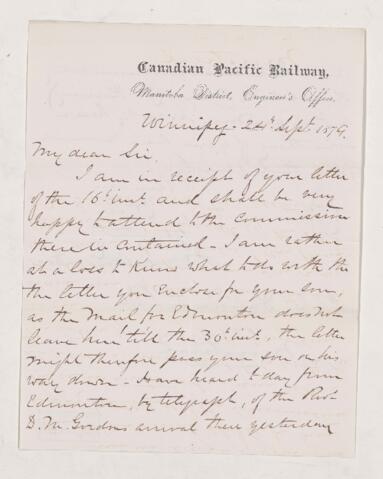 Canadian Pacific Railway,
Manitoba District, Engineer's Office.
Winnipeg - 24th Sept. 1879.
My dear Sir,
I am in receipt of your letter
of the 16th inst. and shall be very
happy to attend to the commission
therein contained - I am rather
at a loss to know what to do with the
the letter you enclose for your son,
as the Mail for Edmonton does not
leave here 'till the 30th inst., the letter
might therefore pass your son on his
way down - I have heard to day from
Edmonton, by telegraph, of the Revd
D. M. Gordons arrival there yesterday